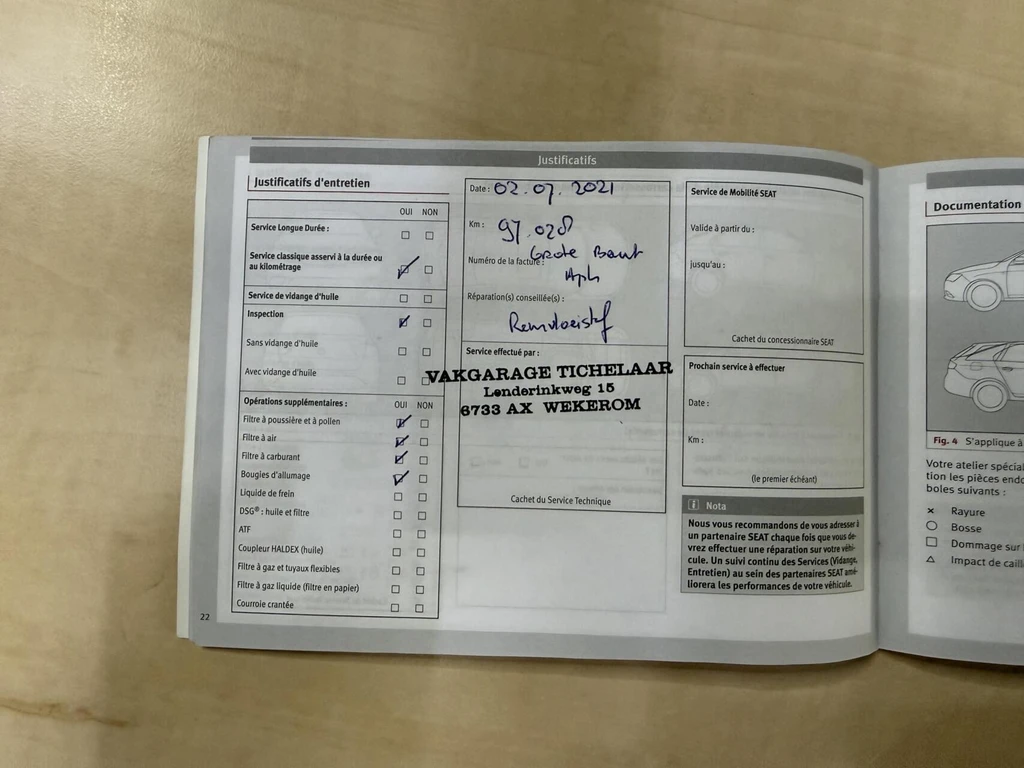 Justificatifs
Justificatifs d'entretien
OUI NON
Service Longue Durée :
Service classique asservi à la durée ou
au kilométrage
Service de vidange d'huile
Inspection
Sans vidange d'huile
Avec vidange d'huile
Opérations supplémentaires : OUI NON
Filtre à poussière et à pollen
Filtre à air
Filtre à carburant
Bougies d'allumage
Liquide de frein
DSG® : huile et filtre
ATF
Coupleur HALDEX (huile)
Filtre à gaz et tuyaux flexibles
Filtre à gaz liquide (filtre en papier)
Courroie crantée
22
Date : 02.07.2021
Km : 97.028
Grote Beurt
Numéro de la facture :
Réparation(s) conseillée(s) :
Remvloeistof
Service effectué par :
VAKGARAGE TICHELAAR
Lenderinkweg 15
6733 AX WEKEROM
Cachet du Service Technique
Service de Mobilité SEAT
Valide à partir du :
jusqu'au :
Cachet du concessionnaire SEAT
Prochain service à effectuer
Date :
Km :
(le premier échéant)
i Nota
Nous vous recommandons de vous adresser à
un partenaire SEAT chaque fois que vous de-
vrez effectuer une réparation sur votre véhi-
cule. Un suivi continu des Services (Vidange,
Entretien) au sein des partenaires SEAT amé-
liorera les performances de votre véhicule.
Documentation
Fig. 4 S'applique à
Votre atelier spécial
tion les pièces endo
boles suivants :
Rayure
Bosse
Dommage sur l
Impact de caill